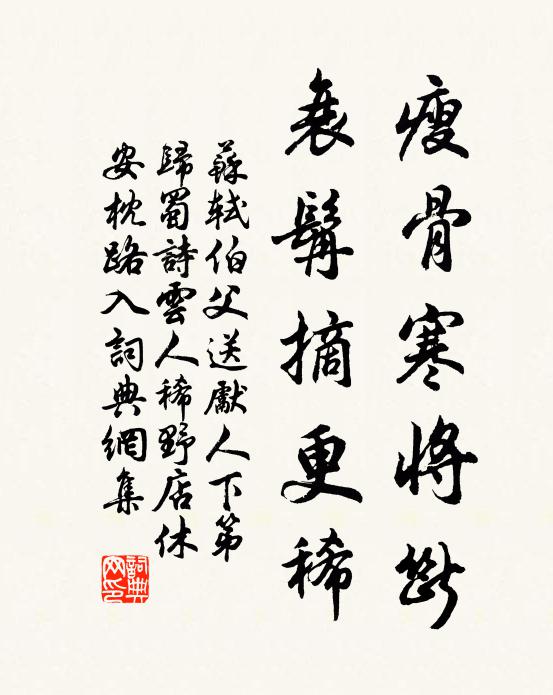 瘦骨寒將斷
衰鬢摘更稀
蘇軾伯父送獻人下第
歸蜀詩雲人稀野店休
安枕路入詞典網集
詞典网印